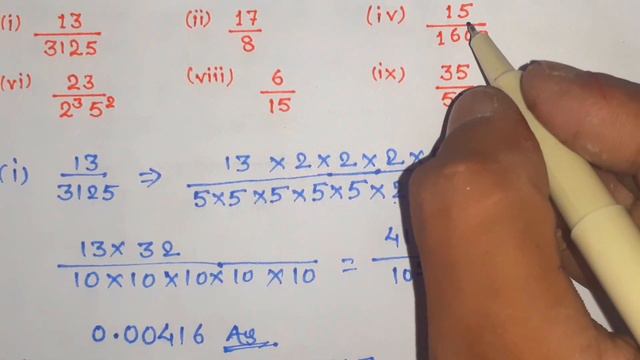 (i) 13/3125 (ii) 17/8 (iv) 15/160
(vi) 23/2³5² (viii) 6/15 (ix) 35/5
(i) 13/3125 ⇒ 13 × 2 × 2 × 2 × / 5 × 5 × 5 × 5 × 5 ×
13 × 32 / 10 × 10 × 10 × 10 × 10 = 4 / 10
0.00416 Ans